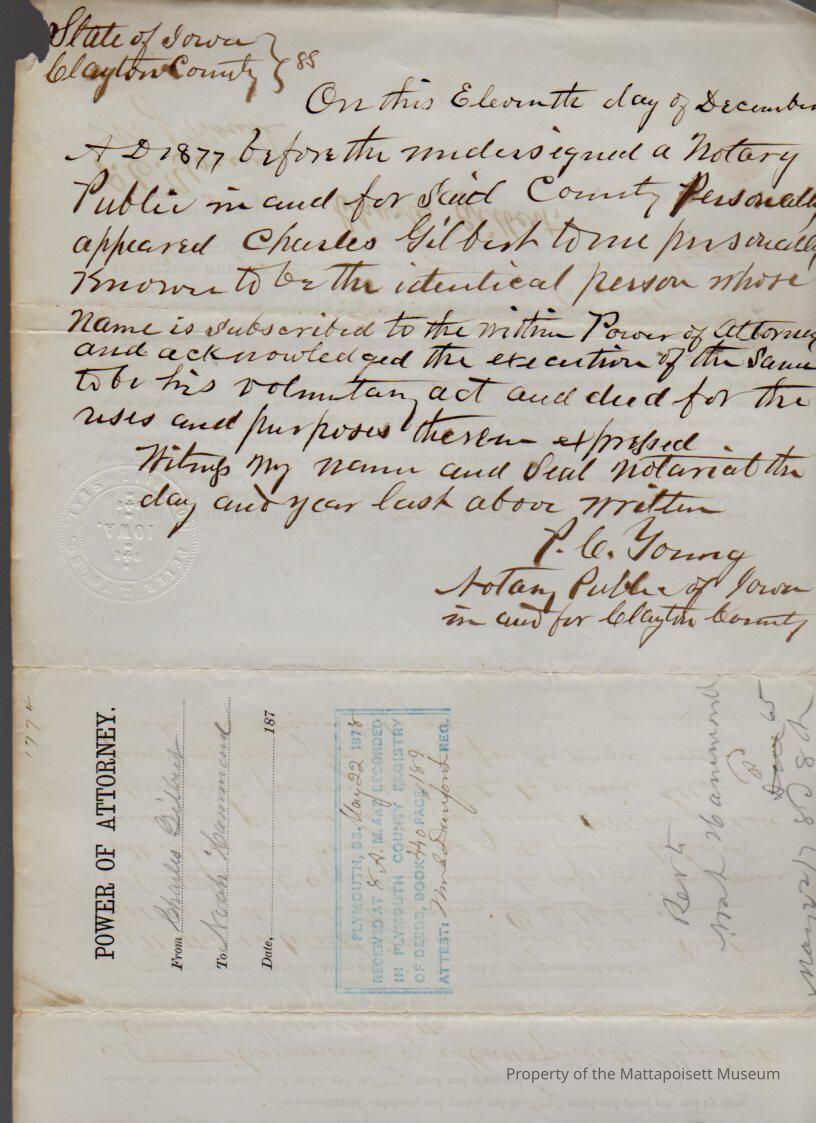 State of Iowa }
Clayton County } SS
On this Eleventh day of December
A D 1877 before the undersigned a Notary
Public in and for Said County Personally
appeared Charles Gilbert to me personally
Known to be the identical person whose
Name is subscribed to the within Power of Attorney
and acknowledged the execution of the Same
to be his voluntary act and deed for the
uses and purposes therein expressed
Witness my name and Seal Notarial the
day and year last above written
P. C. Young
Notary Public of Iowa
in and for Clayton County
IOWA.
1774
POWER OF ATTORNEY.
From Charles Gilbert
To Noah Hammond
Date, 187
PLYMOUTH, SS. May 22 1878
RECEIVED AT 8 A. M. AND RECORDED
IN PLYMOUTH COUNTY REGISTRY
OF DEEDS, BOOK 440 PAGE 189
ATTEST: REG.
Noah Hammond
65
Property of the Mattapoisett Museum